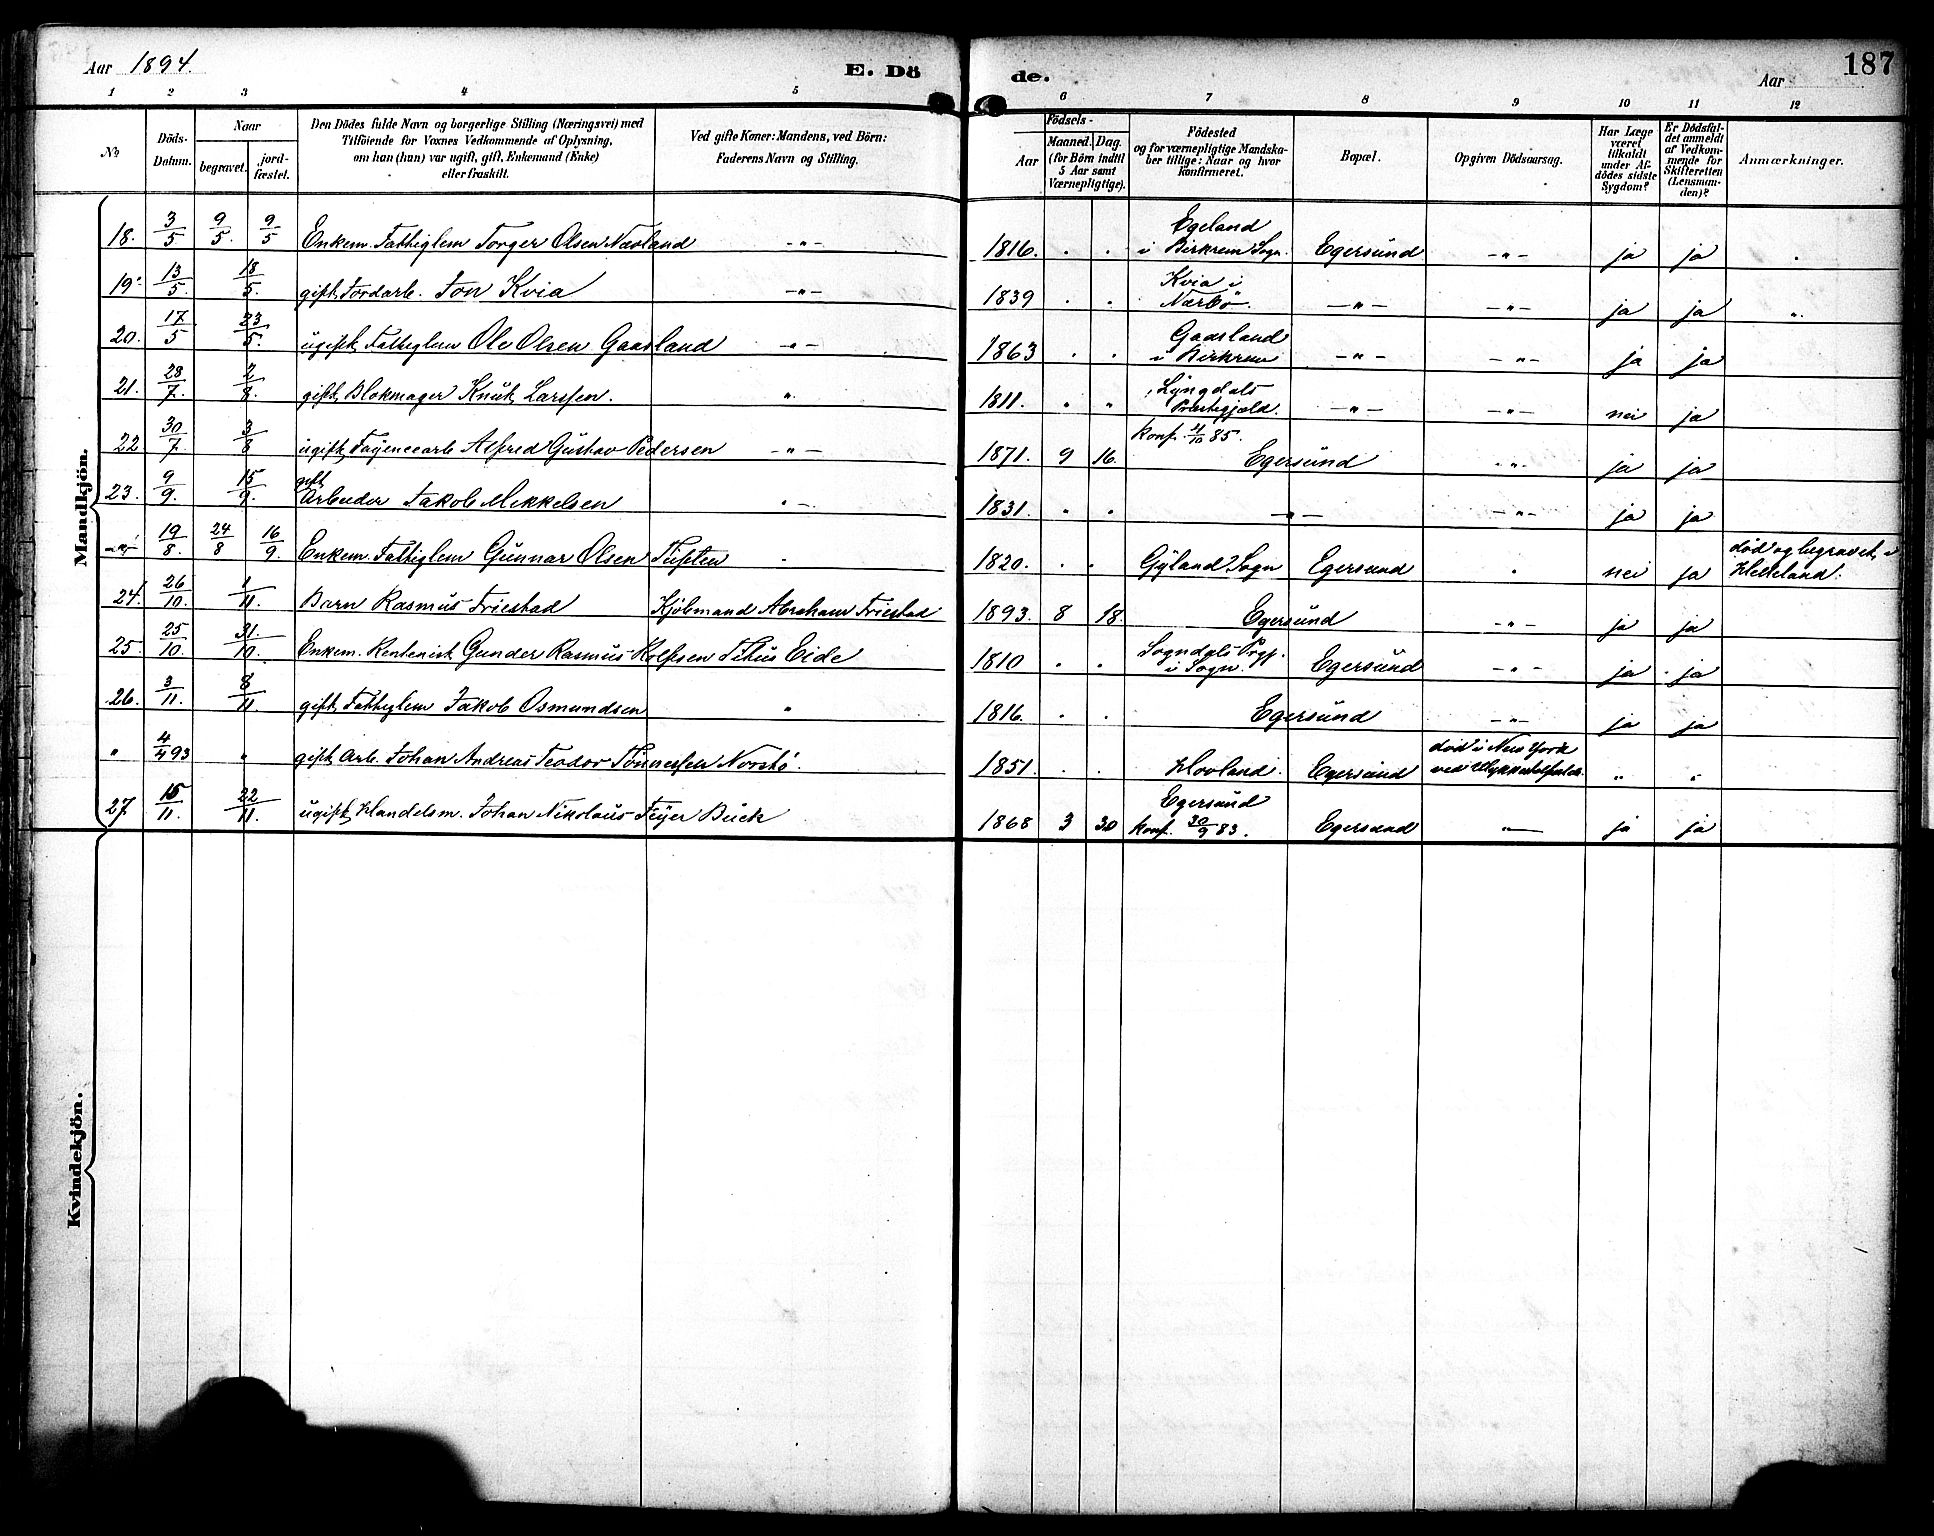 Aar 1894.
E. Dö
de.
Aar
187
1 2 3 4 5 6 7 8 9 10 11 12
No
Döds-Datum.
Naar
begravet.
jord-fæstet.
Den Dödes fulde Navn og borgerlige Stilling (Næringsvei) med
Tilföiende for Voxnes Vedkommende af Oplysning,
om han (hun) var ugift, gift, Enkemand (Enke)
eller fraskilt.
Ved gifte Koner: Mandens, ved Börn:
Faderens Navn og Stilling.
Födsels-
Aar
Maaned. Dag.
(for Börn indtil
5 Aar samt
Værnepligtige).
Födested
og for værnepligtige Mandska-
ber tillige: Naar og hvor
konfirmeret.
Bopæl.
Opgiven Dödsaarsag.
Har Læge
været
tilkaldt
under Af-
dödes sidste
Sygdom?
Er Dödsfal-
det anmeldt
af Vedkom-
mende for
Skifteretten
(Lensman-
den)?
Anmærkninger.
Mandkjön.
18. 3/5 9/5. 9/5 Enkem. Fattiglem Torger Olsen Næsland -"- 1816. . . Egeland i Birkrem Sogn. Egersund -"- ja ja .
19. 13/5 18/5. gift, Jordarb. Jon Kvia -"- 1839 . . Kvia i Nærbø. -"- -"- ja ja ".
20. 17/5 23/5. ugift, Fattiglem Ole Olsen Gaasland -"- 1863 . . Gaasland i Birkrem -"- -"- ja ja
21. 28/7. 2/8. gift, Blokmager Knut Larssen. ". 1811. " " Lyngdals Præstegjæld. -"- -"- nei ja
22 30/7 3/8 ugift, Fayencearb Alfred Gustav Pedersen -"- 1871. 9 16. konf. 4/10 85. Egersund "- ja ja
23. 9/9. 15/9. gift Arbeider Jakob Mikkelsen "- 1831. " . -"- -"- ja ja
19/8. 24/8 16/9. Enkem. Fattiglem Gunnar Olsen Tuften - 1820. . . Gyland Sogn Egersund " nei ja død og begravet i Helleland.
24. 26/10. 1/11. Barn Rasmus Friestad Kjøbmand Abraham Friestad 1893. 8 18. Egersund -"- ja ja
25. 25/10. 31./10. Enkem. Rentenist Gunder Rasmus Rolfsen Titus Eide 1810 . . Sogndals Prgj. i Sogn. Egersund -"- ja ja
26. 3/11. 8/11. gift, Fattiglem Jakob Osmundsen " 1816. . . Egersund -"- ja ja
" 4/4 93 " gift, Arb. Johan Andreas Teodor Tønnessen Norstø. 1851. . . Hovland. Egersund død i New York ved Ulykkestilfælde. " "
27. 15/11. 22/11. ugift, Handelsm. Johan Nikolaus Feyer Buck 1868 3 30 Egersund konf. 30/9 83. Egersund "- ja ja
Kvindekjön.